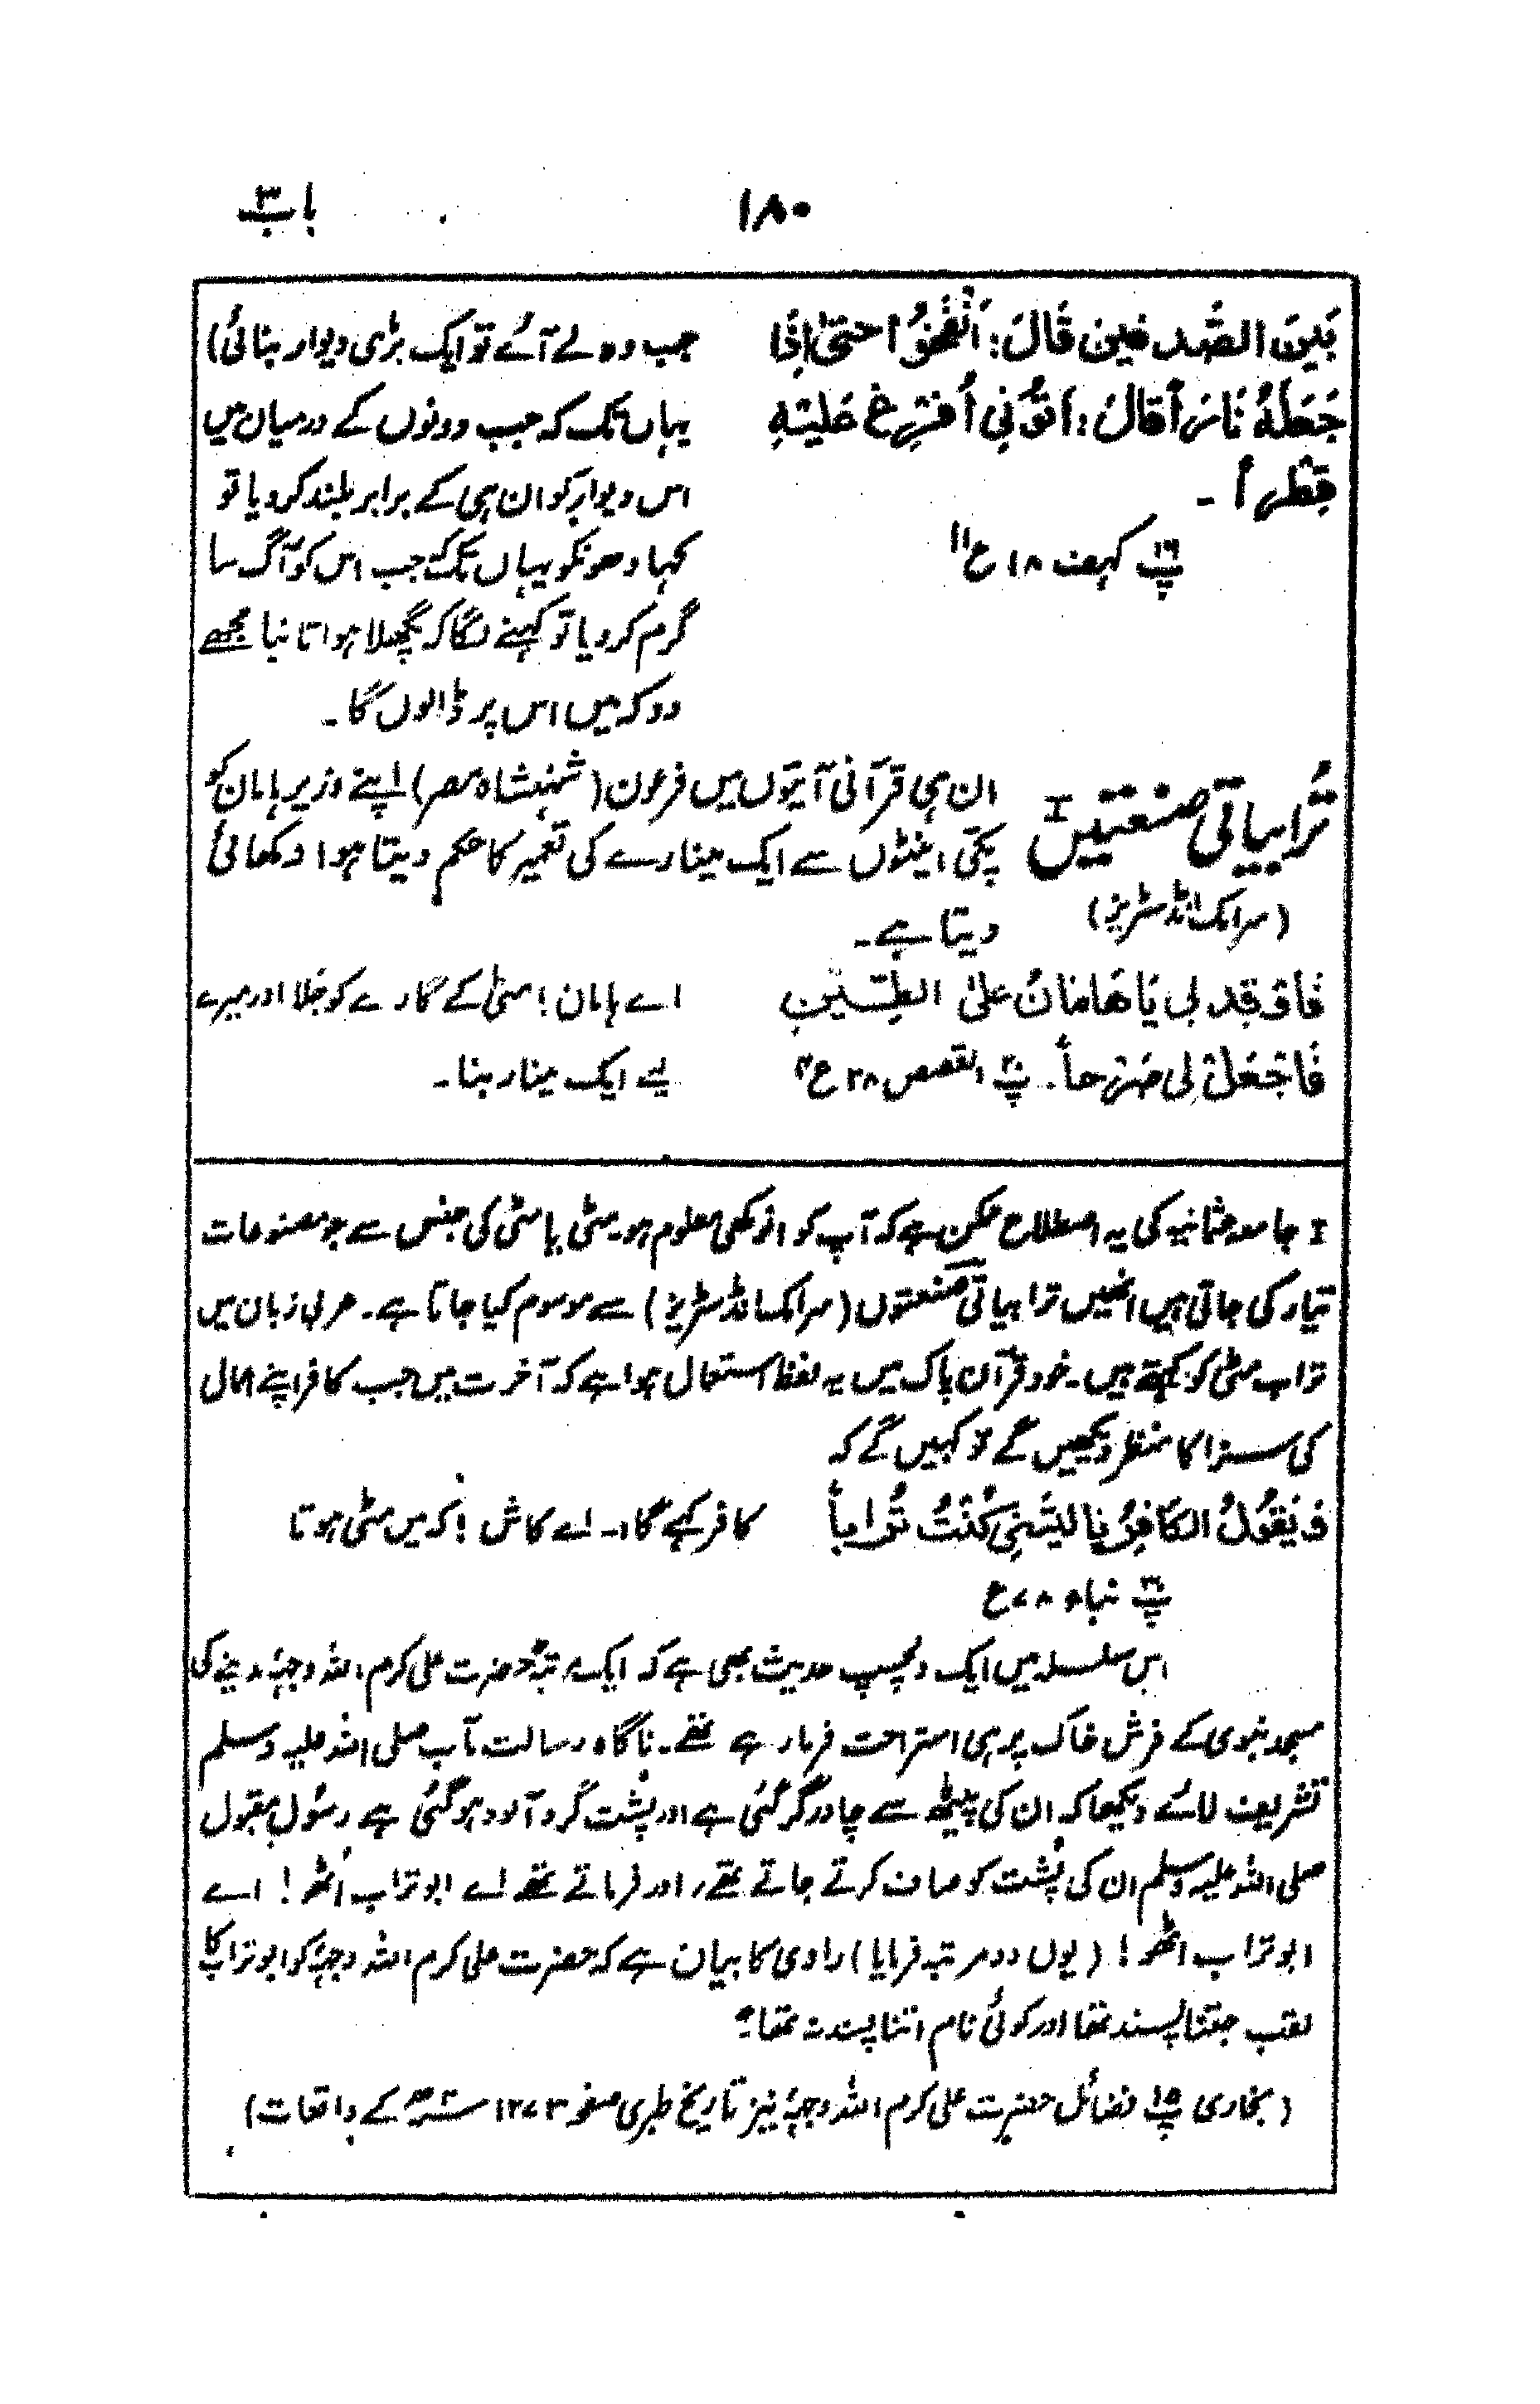 ۱۸۰
باب ۳
بَینَ الصَّدفین قَالَ: اَنْفُخُوْا حتیّٰ اِذَا
جَعَلَهُ نَارًا قَالَ: اٰتُوْنِی اُفْرِغ عَلیَهِ
قِطْراً ۔
پ۱۶ کہف ۱۸ ع۱۱
جب وہ لے آئے تو ایک بڑی دیوار بنائی)
یہاں تک کہ جب دونوں کے درمیان میں
اس دیوار کو ان ہی کے برابر بلند کردیا تو
کہا دھونکو یہاں تک کہ جب اس کو آگ سا
گرم کردیا تو کہنے لگا کہ پگھلا ہوا تانبا مجھے
دو کہ میں اس پر ڈالوں گا ۔
تُرابیاتی صنعتیں I
(سرامک انڈسٹریز)
ان ہی قرآنی آیتوں میں فرعون (شہنشاہ مصر) اپنے وزیر ہامان کو
پکّی اینٹوں سے ایک مینارے کی تعمیر کا حکم دیتا ہوا دکھائی
دیتا ہے ۔
فَاَوقِد لی یَا هَامَانُ عَلیٰ الطِّینِ
فَاجْعَلْ لی صَرْحاً ۔ پ۲۰ القصص ۲۸ ع۴
اے ہامان ! مٹی کے گارے کو جَلا اور میرے
لیے ایک مینار بنا ۔
I جامعہ عثمانیہ کی یہ اصطلاح ممکن ہے کہ آپ کو انوکھی معلوم ہو۔ مٹی یا مٹی کی جنس سے جو مصنوعات
تیار کی جاتی ہیں انھیں ترابیاتی صنعتوں (سرامک انڈسٹریز) سے موسوم کیا جاتا ہے ۔ عربی زبان میں
تراب مٹی کو کہتے ہیں ۔ خود قرآن پاک میں یہ لفظ استعمال ہوا ہے کہ آخرت میں جب کافر اپنے اعمال
کی سزا کا منظر دیکھیں گے تو کہیں گے کہ
وَ یَقُولُ الکَافِرُ یا لیتَنِی کُنْتُ تُراباً
پ۳۰ نباء ۷۸ ع
کافر کہے گا ۔ اے کاش ! کہ میں مٹی ہوتا
اس سلسلہ میں ایک دلچسپ حدیث بھی ہے کہ ایک مرتبہ حضرت علی کرم اللہ وجہہٗ مدینے کی
مسجد نبوی کے فرش خاک پر ہی استراحت فرما رہے تھے ۔ ناگاہ رسالت مآب صلی اللہ علیہ وسلم
تشریف لائے دیکھا کہ ان کی پیٹھ سے چادر گر گئی ہے اور پُشت گرد آلود ہوگئی ہے رسُول مقبول
صلی اللہ علیہ وسلم ان کی پُشت کو صاف کرتے جاتے تھے، اور فرماتے تھے اے ابوتراب اُٹھ ! اے
ابو تراب اٹھ ! (یوں دو مرتبہ فرمایا) راوی کا بیان ہے کہ حضرت علی کرم اللہ وجہہٗ کو ابوتراب کا
لقب جتنا پسند تھا اور کوئی نام اتنا پسند نہ تھا۔"
(بخاری پ۱۵ فضائل حضرت علی کرم اللہ وجہہٗ نیز تاریخ طبری صفحہ ۱۲۷۳ ۲ھ کے واقعات)